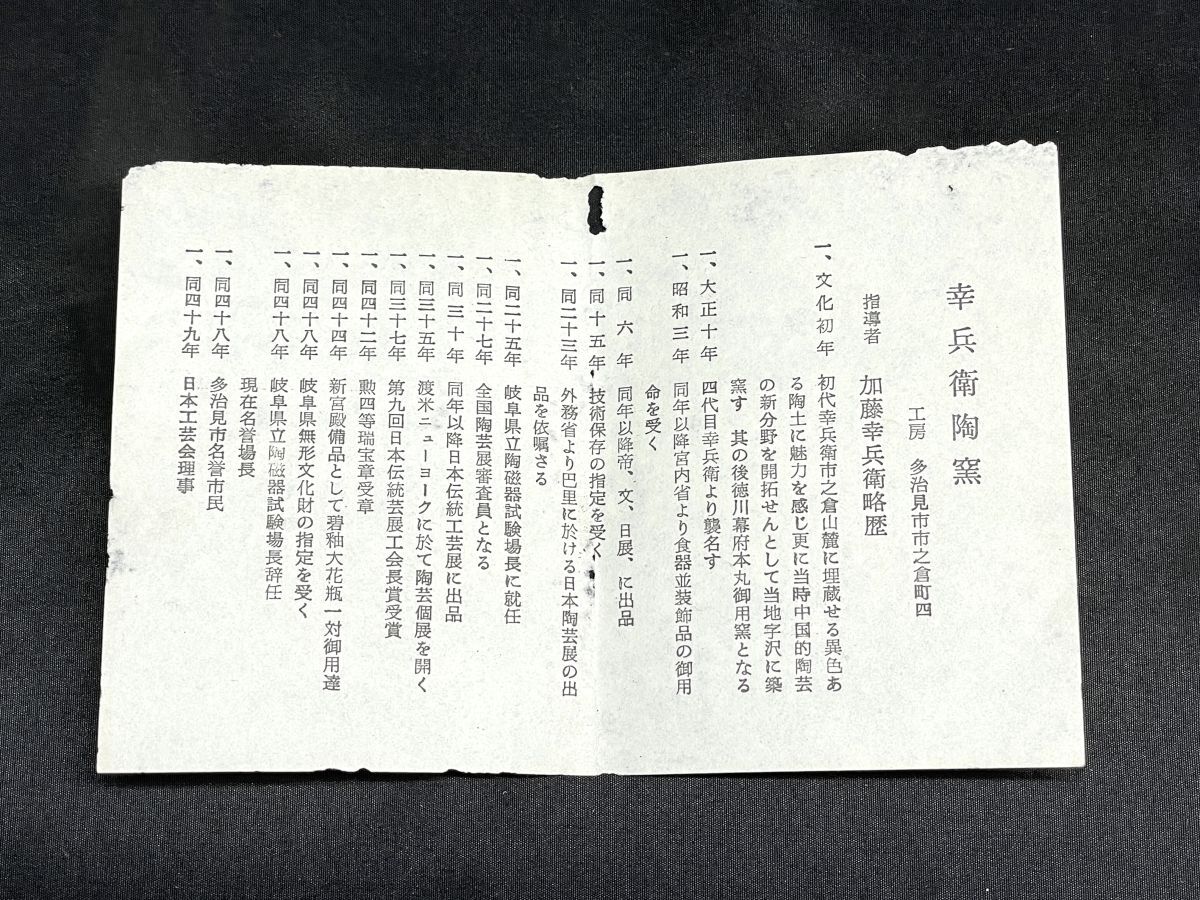 幸兵衛陶窯
工房 多治見市市之倉町四
指導者 加藤幸兵衛略歴
一、文化初年 初代幸兵衛市之倉山麓に埋蔵せる異色あ
る陶土に魅力を感じ更に当時中国的陶芸
の新分野を開拓せんとして当地字沢に築
窯す 其の後徳川幕府本丸御用窯となる
一、大正十年 四代目幸兵衛より襲名す
一、昭和三年 同年以降宮内省より食器並装飾品の御用
命を受く
一、同 六 年 同年以降帝、文、日展、に出品
一、同十五年 技術保存の指定を受く
一、同二十三年 外務省より巴里に於ける日本陶芸展の出
品を依嘱さる
一、同二十五年 岐阜県立陶磁器試験場長に就任
一、同二十七年 全国陶芸展審査員となる
一、同 三十 年 同年以降日本伝統工芸展に出品
一、同三十五年 渡米ニューヨークに於て陶芸個展を開く
一、同三十七年 第九回日本伝統芸展工会長賞受賞
一、同四十二年 勲四等瑞宝章受章
一、同四十四年 新宮殿備品として碧釉大花瓶一対御用達
一、同四十八年 岐阜県無形文化財の指定を受く
一、同四十八年 岐阜県立陶磁器試験場長辞任
現在名誉場長
一、同四十八年 多治見市名誉市民
一、同四十九年 日本工芸会理事